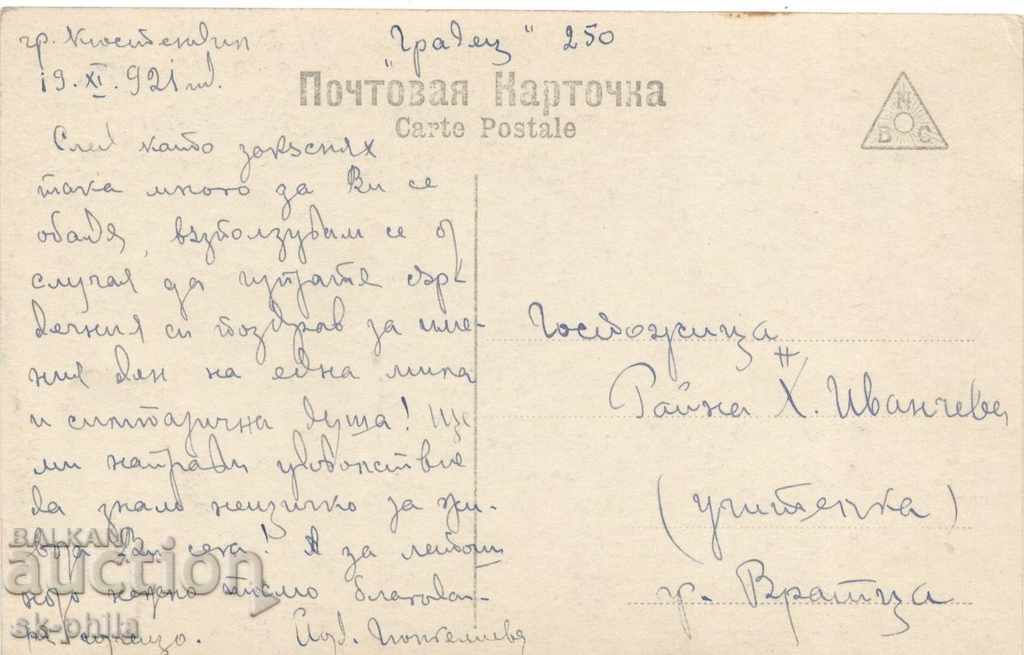 гр. Кюстендил
19.XI.921 год.
"Градец" 250
Почтовая Карточка
Carte Postale
М
В С
След като закъснях
така много за Ви се
обадя, възползувам се от
случая да изпратя сър-
дечния си поздрав за име-
ния ден на една мила
и симпатична душа! Ще
ми направи удоволствие
да зная нещичко за жи-
вота Ви сега! А за
нежно писмо благодаря
сърдечно.
Госпожица
Райна Х. Иванчева
(учителка)
гр. Вратца
BALKAN
auction
ak-phila